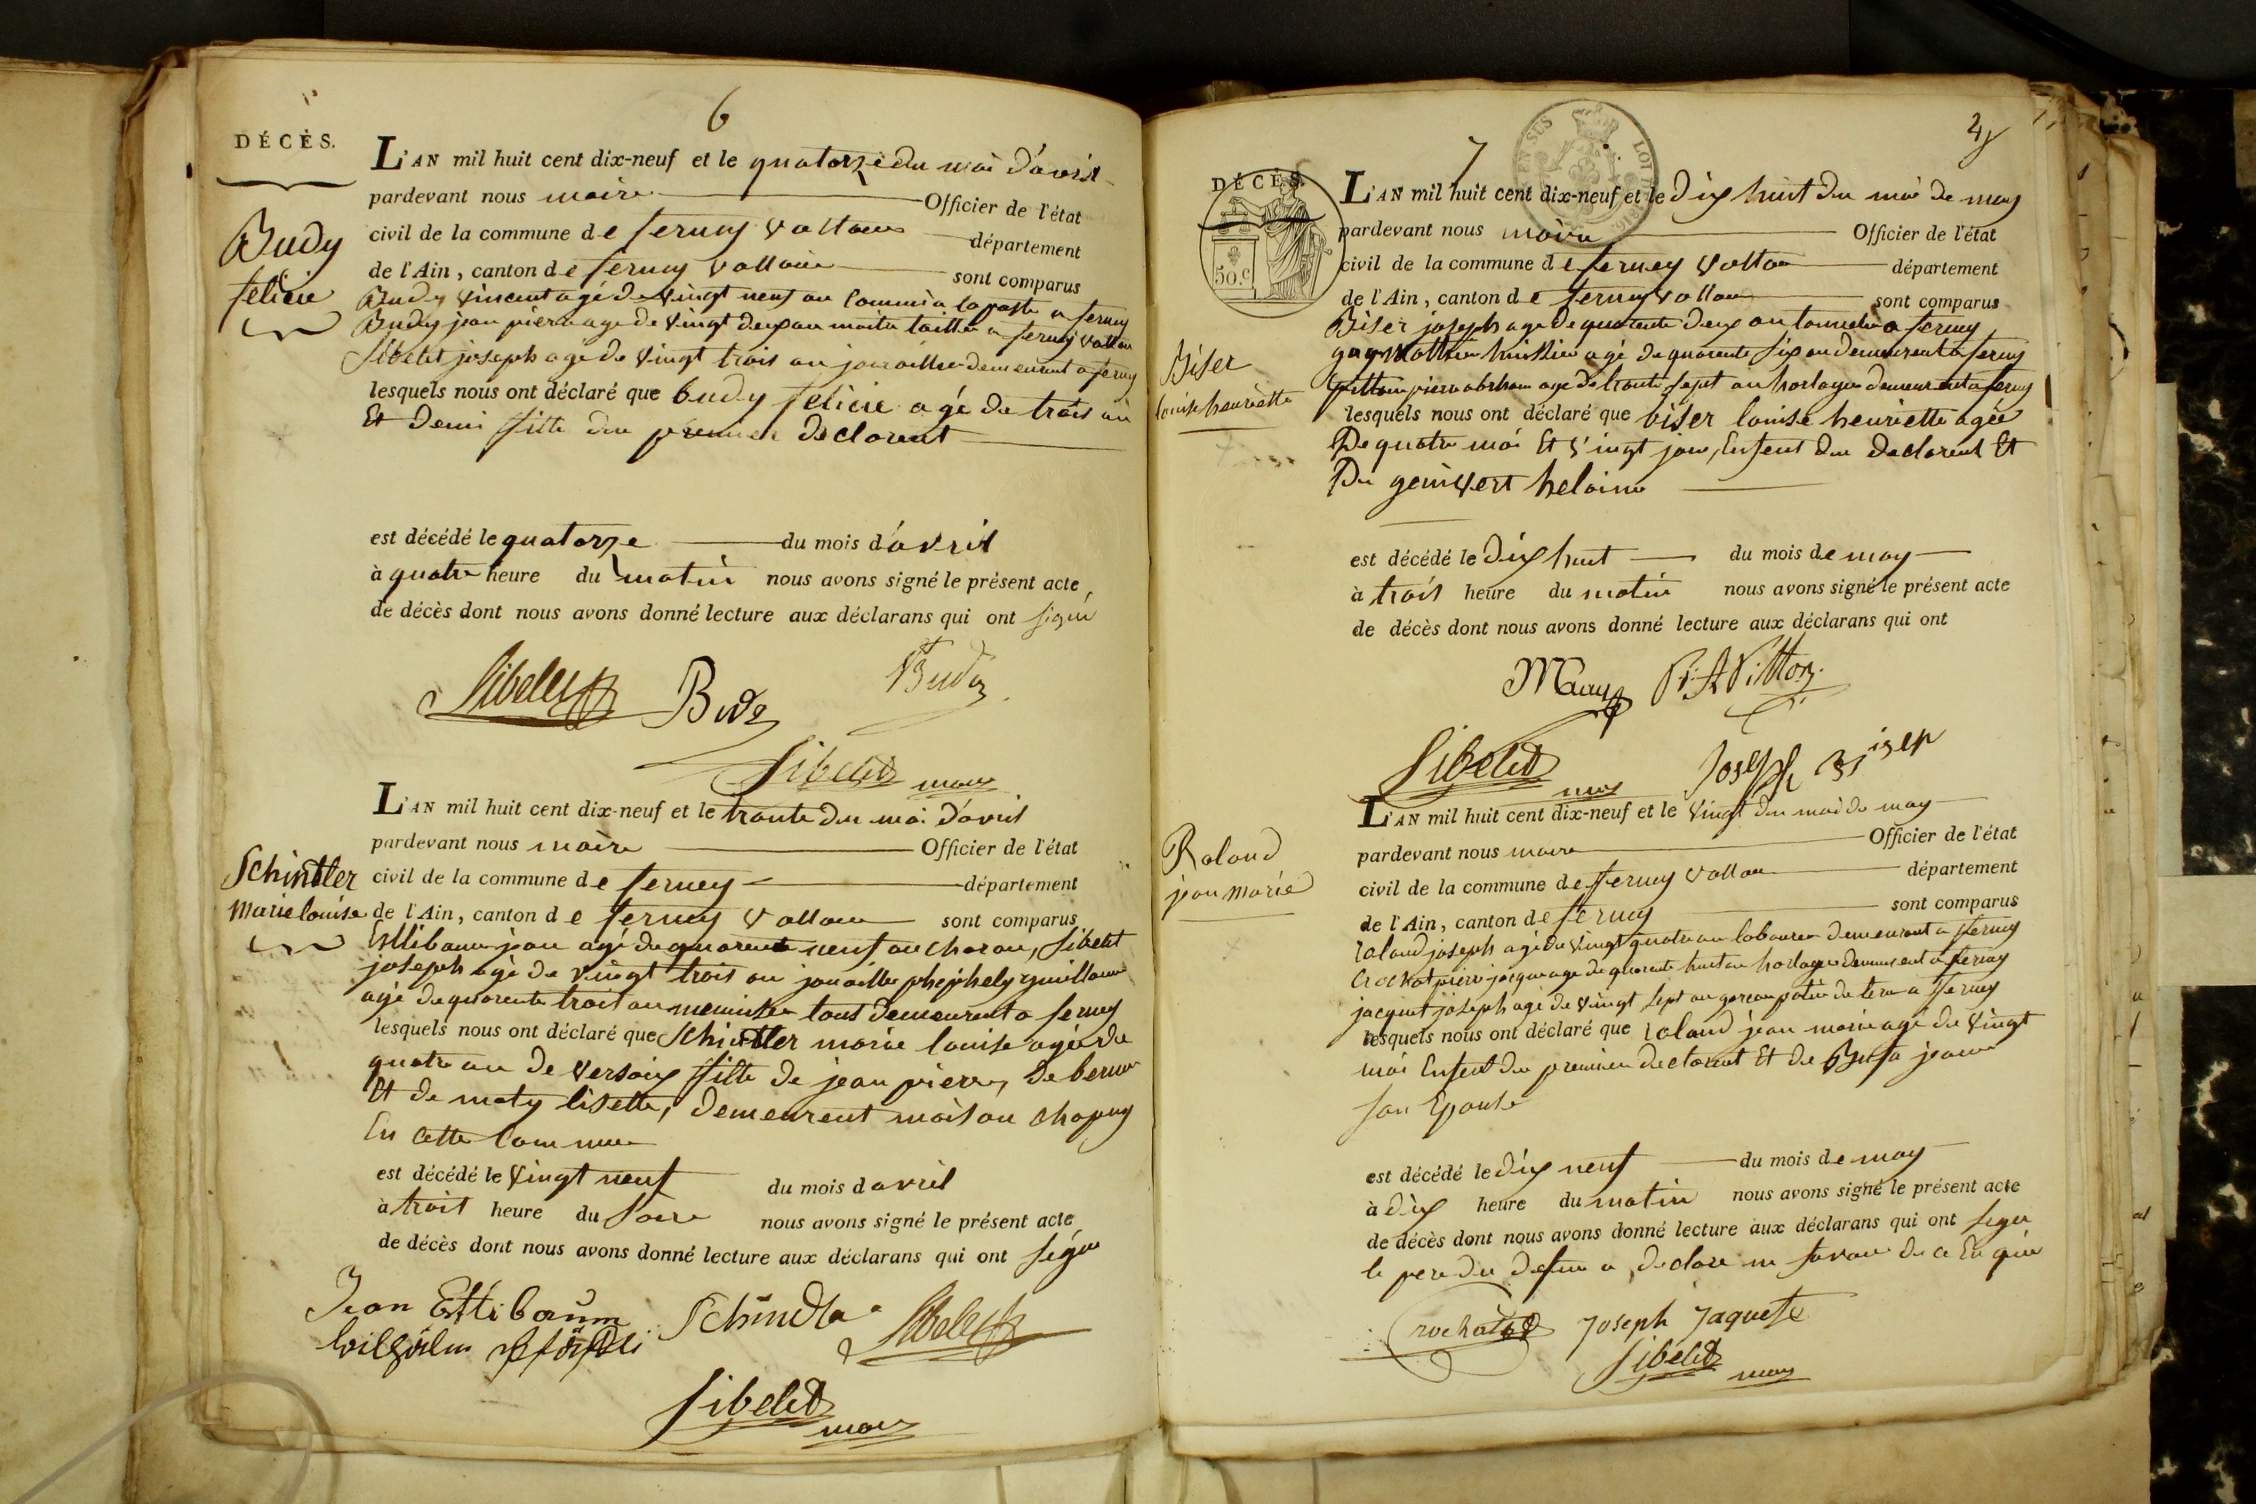 6
DÉCÈS.
L'AN mil huit cent dix-neuf et le quatorze du moi d'avril
pardevant nous maire Officier de l'état
civil de la commune de ferney voltaire département
de l'Ain, canton de ferney voltaire sont comparus
Budy
felicie
Budy vincent agé de vingt neuf an commis a la poste a ferney
Budy jean pierre age de vingt deux an maitre tailleur a ferney voltaire
Sibelet joseph agé de vingt trois an joaillier demeurant a ferney
lesquels nous ont déclaré que budy felicie agé de trois an
Et demi fille du premier declarent
est décédé le quatorze du mois d'avril
à quatre heure du matin nous avons signé le présent acte
de décès dont nous avons donné lecture aux déclarans qui ont signé
Sibelet Budy Budy
Sibelet maire
L'AN mil huit cent dix-neuf et le trante du moi d'avril
pardevant nous maire Officier de l'état
Schindler
marie louise
civil de la commune de ferney département
de l'Ain, canton de ferney voltaire sont comparus
Ettibaum jean agé de quarente neuf an charon, Sibelet
joseph agé de vingt trois an joaillier guillaume
agé de quarente trois an menuisier tous demeurent a ferney
lesquels nous ont déclaré que Schindler marie louise agée de
quatre an de versoix fille de jean pierre, de berne
Et de maty lisette, demeurent maison chapuy
En cette commune
est décédé le vingt neuf du mois d avril
à trois heure du soire nous avons signé le présent acte
de décès dont nous avons donné lecture aux déclarans qui ont signé
Jean Ettibaum Schindler Sibelet
Wilhelm
Sibelet maire
7
DÉCÈS.
50 c.
L'AN mil huit cent dix-neuf et le dix huit du moi de may
pardevant nous maire Officier de l'état
civil de la commune de ferney voltaire département
de l'Ain, canton de ferney voltaire sont comparus
Biser
louise henriette
Biser joseph age de quarente deux an tonnelier a ferney
mathieu huissier agé de quarente six an demeurent a ferney
pitton pierre abraham age de trante sept an horloger demeurent a ferney
lesquels nous ont déclaré que biser louise henriette agée
De quatre moi Et vingt jour, Enfent du declarent Et
De geinvert helaine
est décédé le dix huit du mois de may
à trois heure du matin nous avons signé le présent acte
de décès dont nous avons donné lecture aux déclarans qui ont
P: A Pitton
Sibelet maire Joseph Biser
L'AN mil huit cent dix-neuf et le vingt du moi de may
pardevant nous maire Officier de l'état
Roland
jean marie
civil de la commune de ferney voltaire département
de l'Ain, canton de ferney sont comparus
roland joseph agé de vingt quatre an laboureur demeurent a ferney
crochat pierre jacque age de quarente huit an horloger demeurent a ferney
jacquet joseph agé de vingt sept an garcon potié de terre a ferney
lesquels nous ont déclaré que roland jean marie agé de vingt
moi Enfent du premier declarent Et de jeanne
son Epouse
est décédé le dix neuf du mois de may
à dix heure du matin nous avons signé le présent acte
de décès dont nous avons donné lecture aux déclarans qui ont signé
le pere du defun a declare ne savoir de ce En quie
Crochat Joseph Jaquet
Sibelet maire